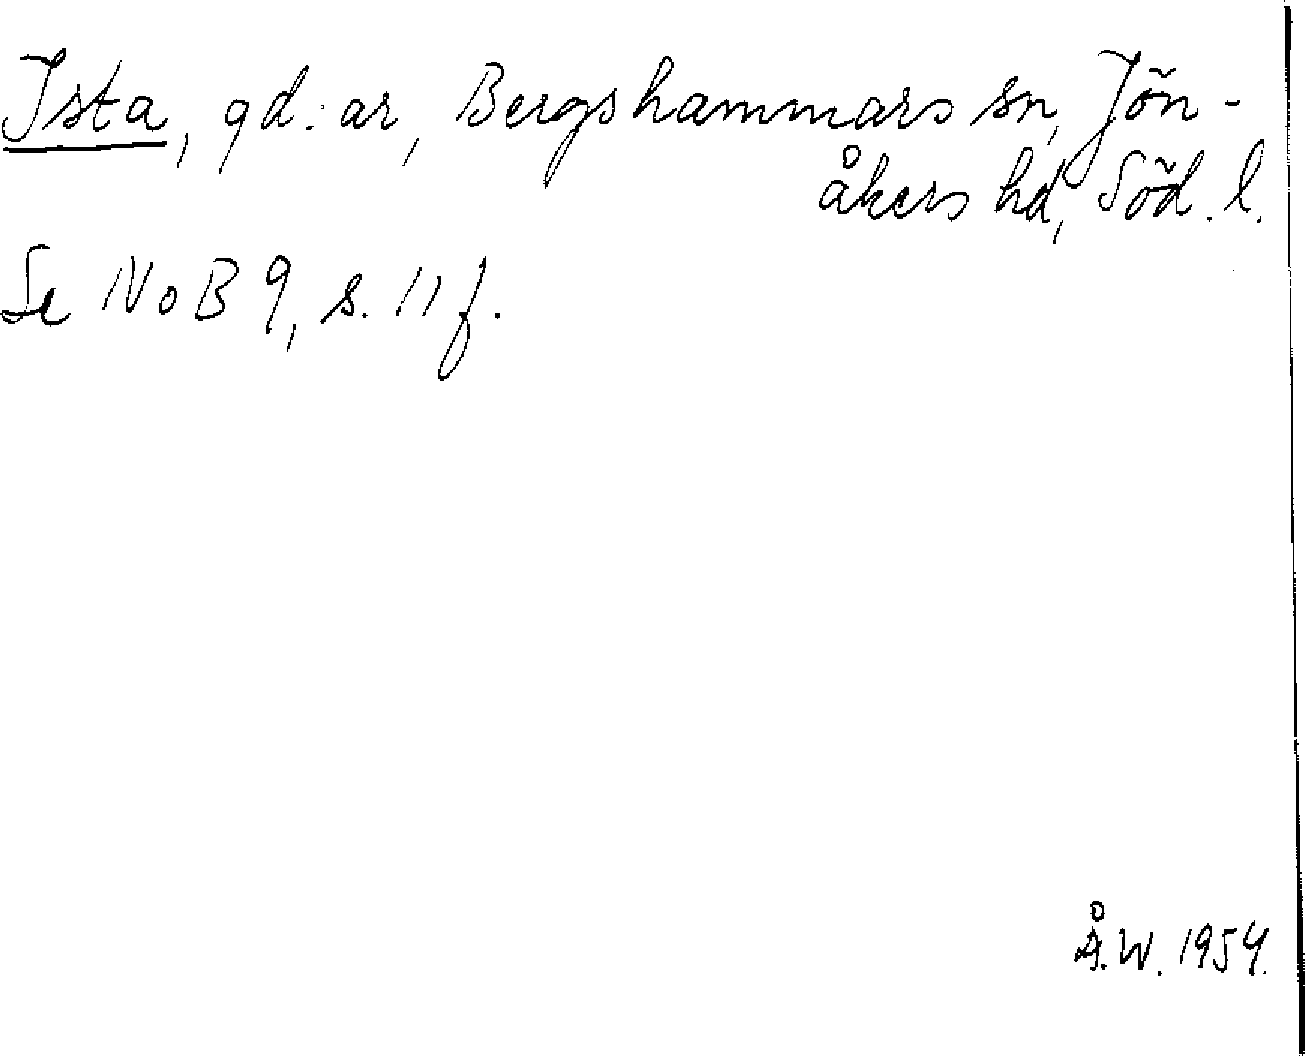 Ista, gd:ar, Bergshammars sn, Jön-
åkers hd, Söd. l.
Se NoB 9, s. 11 f.
Å.W. 1954.